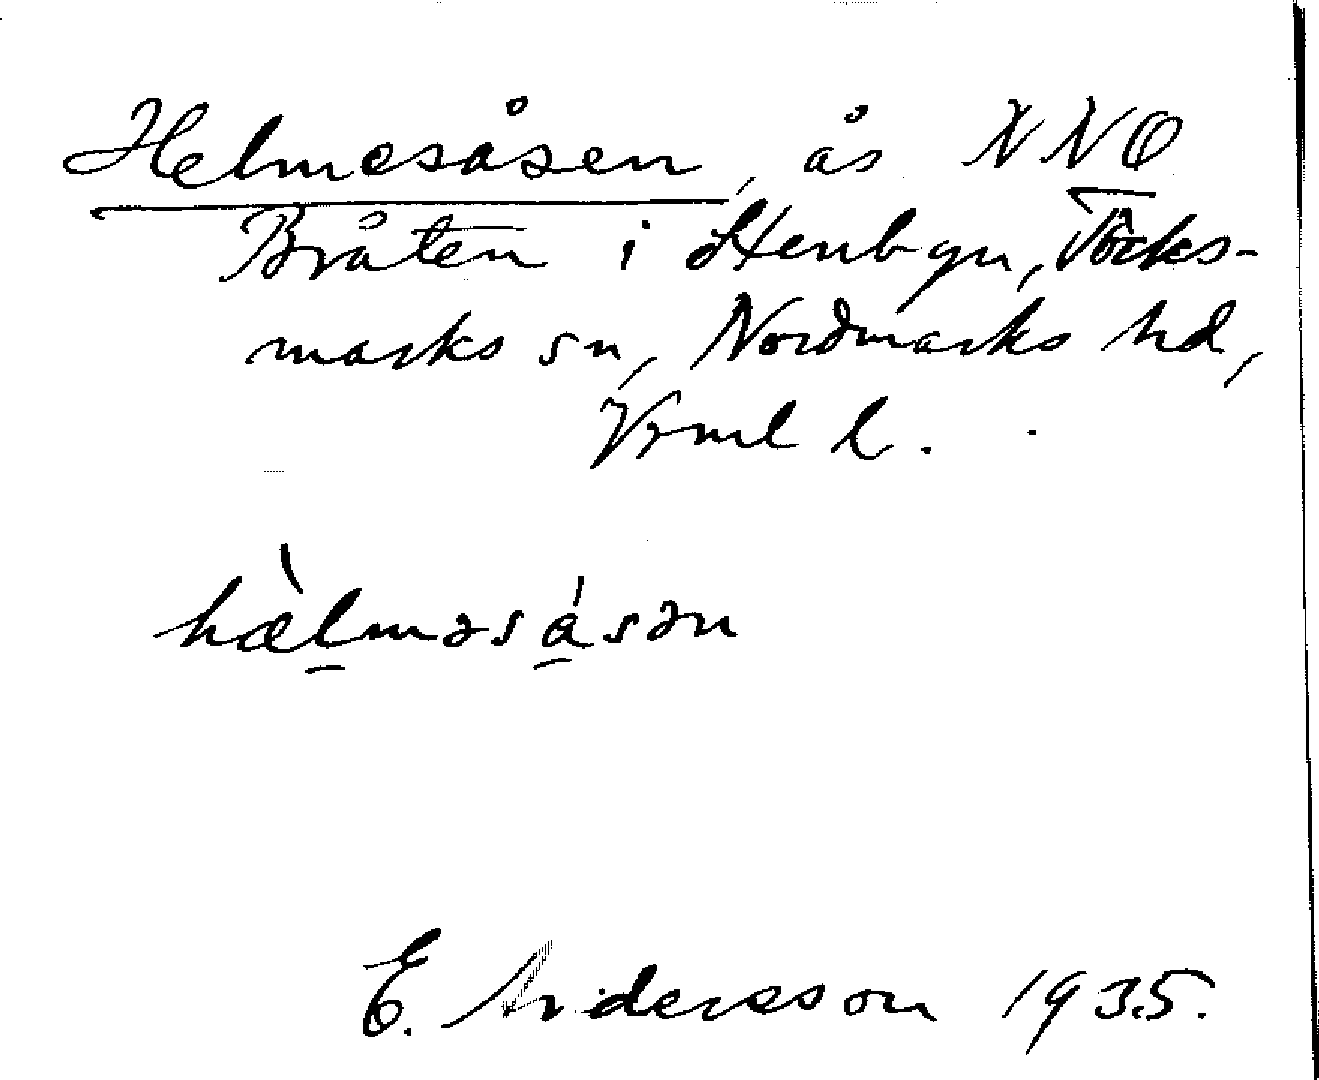 Helmesåsen, ås NNO
Bråten i Stenbyn, Töcks-
marks sn, Nordmarks hd,
Vrml l.
hæ̀lməsåsən
E. Andersson 1935.